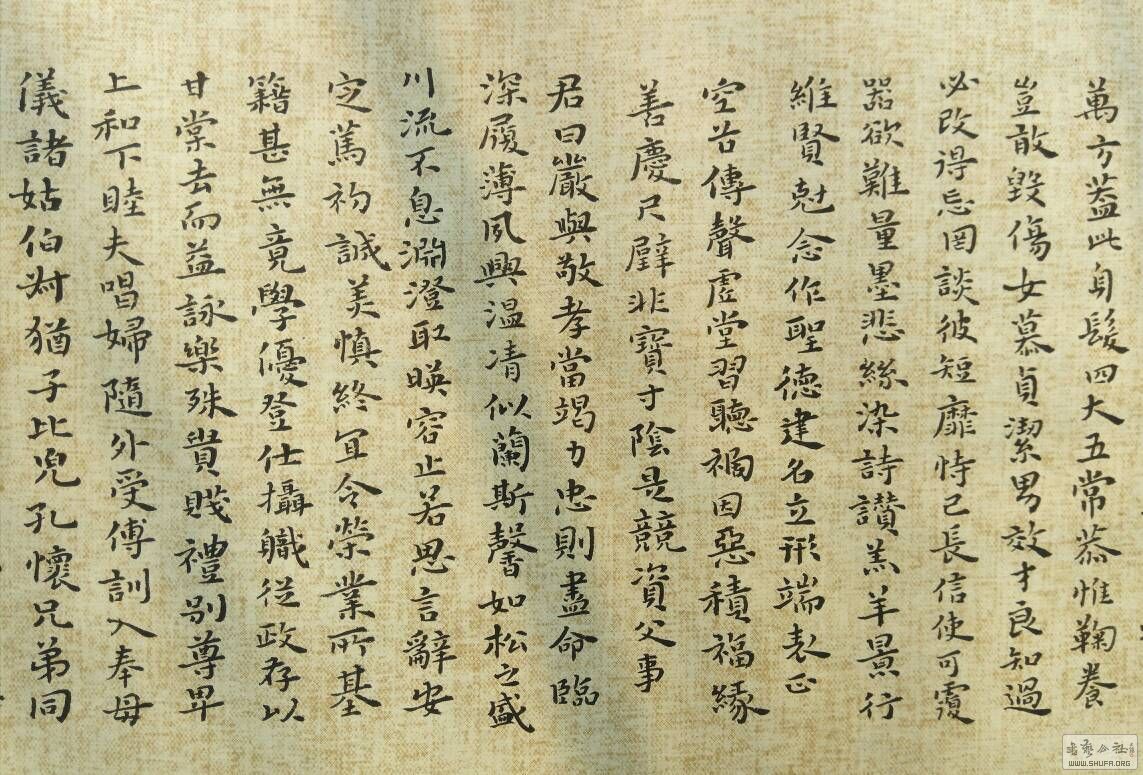 萬方蓋此身髮四大五常恭惟鞠養
豈敢毀傷女慕貞潔男效才良知過
必改得忘罔談彼短靡恃己長信使可覆
器欲難量墨悲絲染詩讚羔羊景行
維賢尅念作聖德建名立形端表正
空谷傳聲虛堂習聽禍因惡積福緣
善慶尺璧非寶寸陰是競資父事
君曰嚴與敬孝當竭力忠則盡命臨
深履薄夙興温凊似蘭斯馨如松之盛
川流不息淵澄取暎容止若思言辭安
定篤初誠美慎終宜令榮業所基
籍甚無竟學優登仕攝職從政存以
甘棠去而益詠樂殊貴賤禮別尊卑
上和下睦夫唱婦隨外受傅訓入奉母
儀諸姑伯叔猶子比兒孔懷兄弟同
書藝公社
WWW.SHUFA.ORG